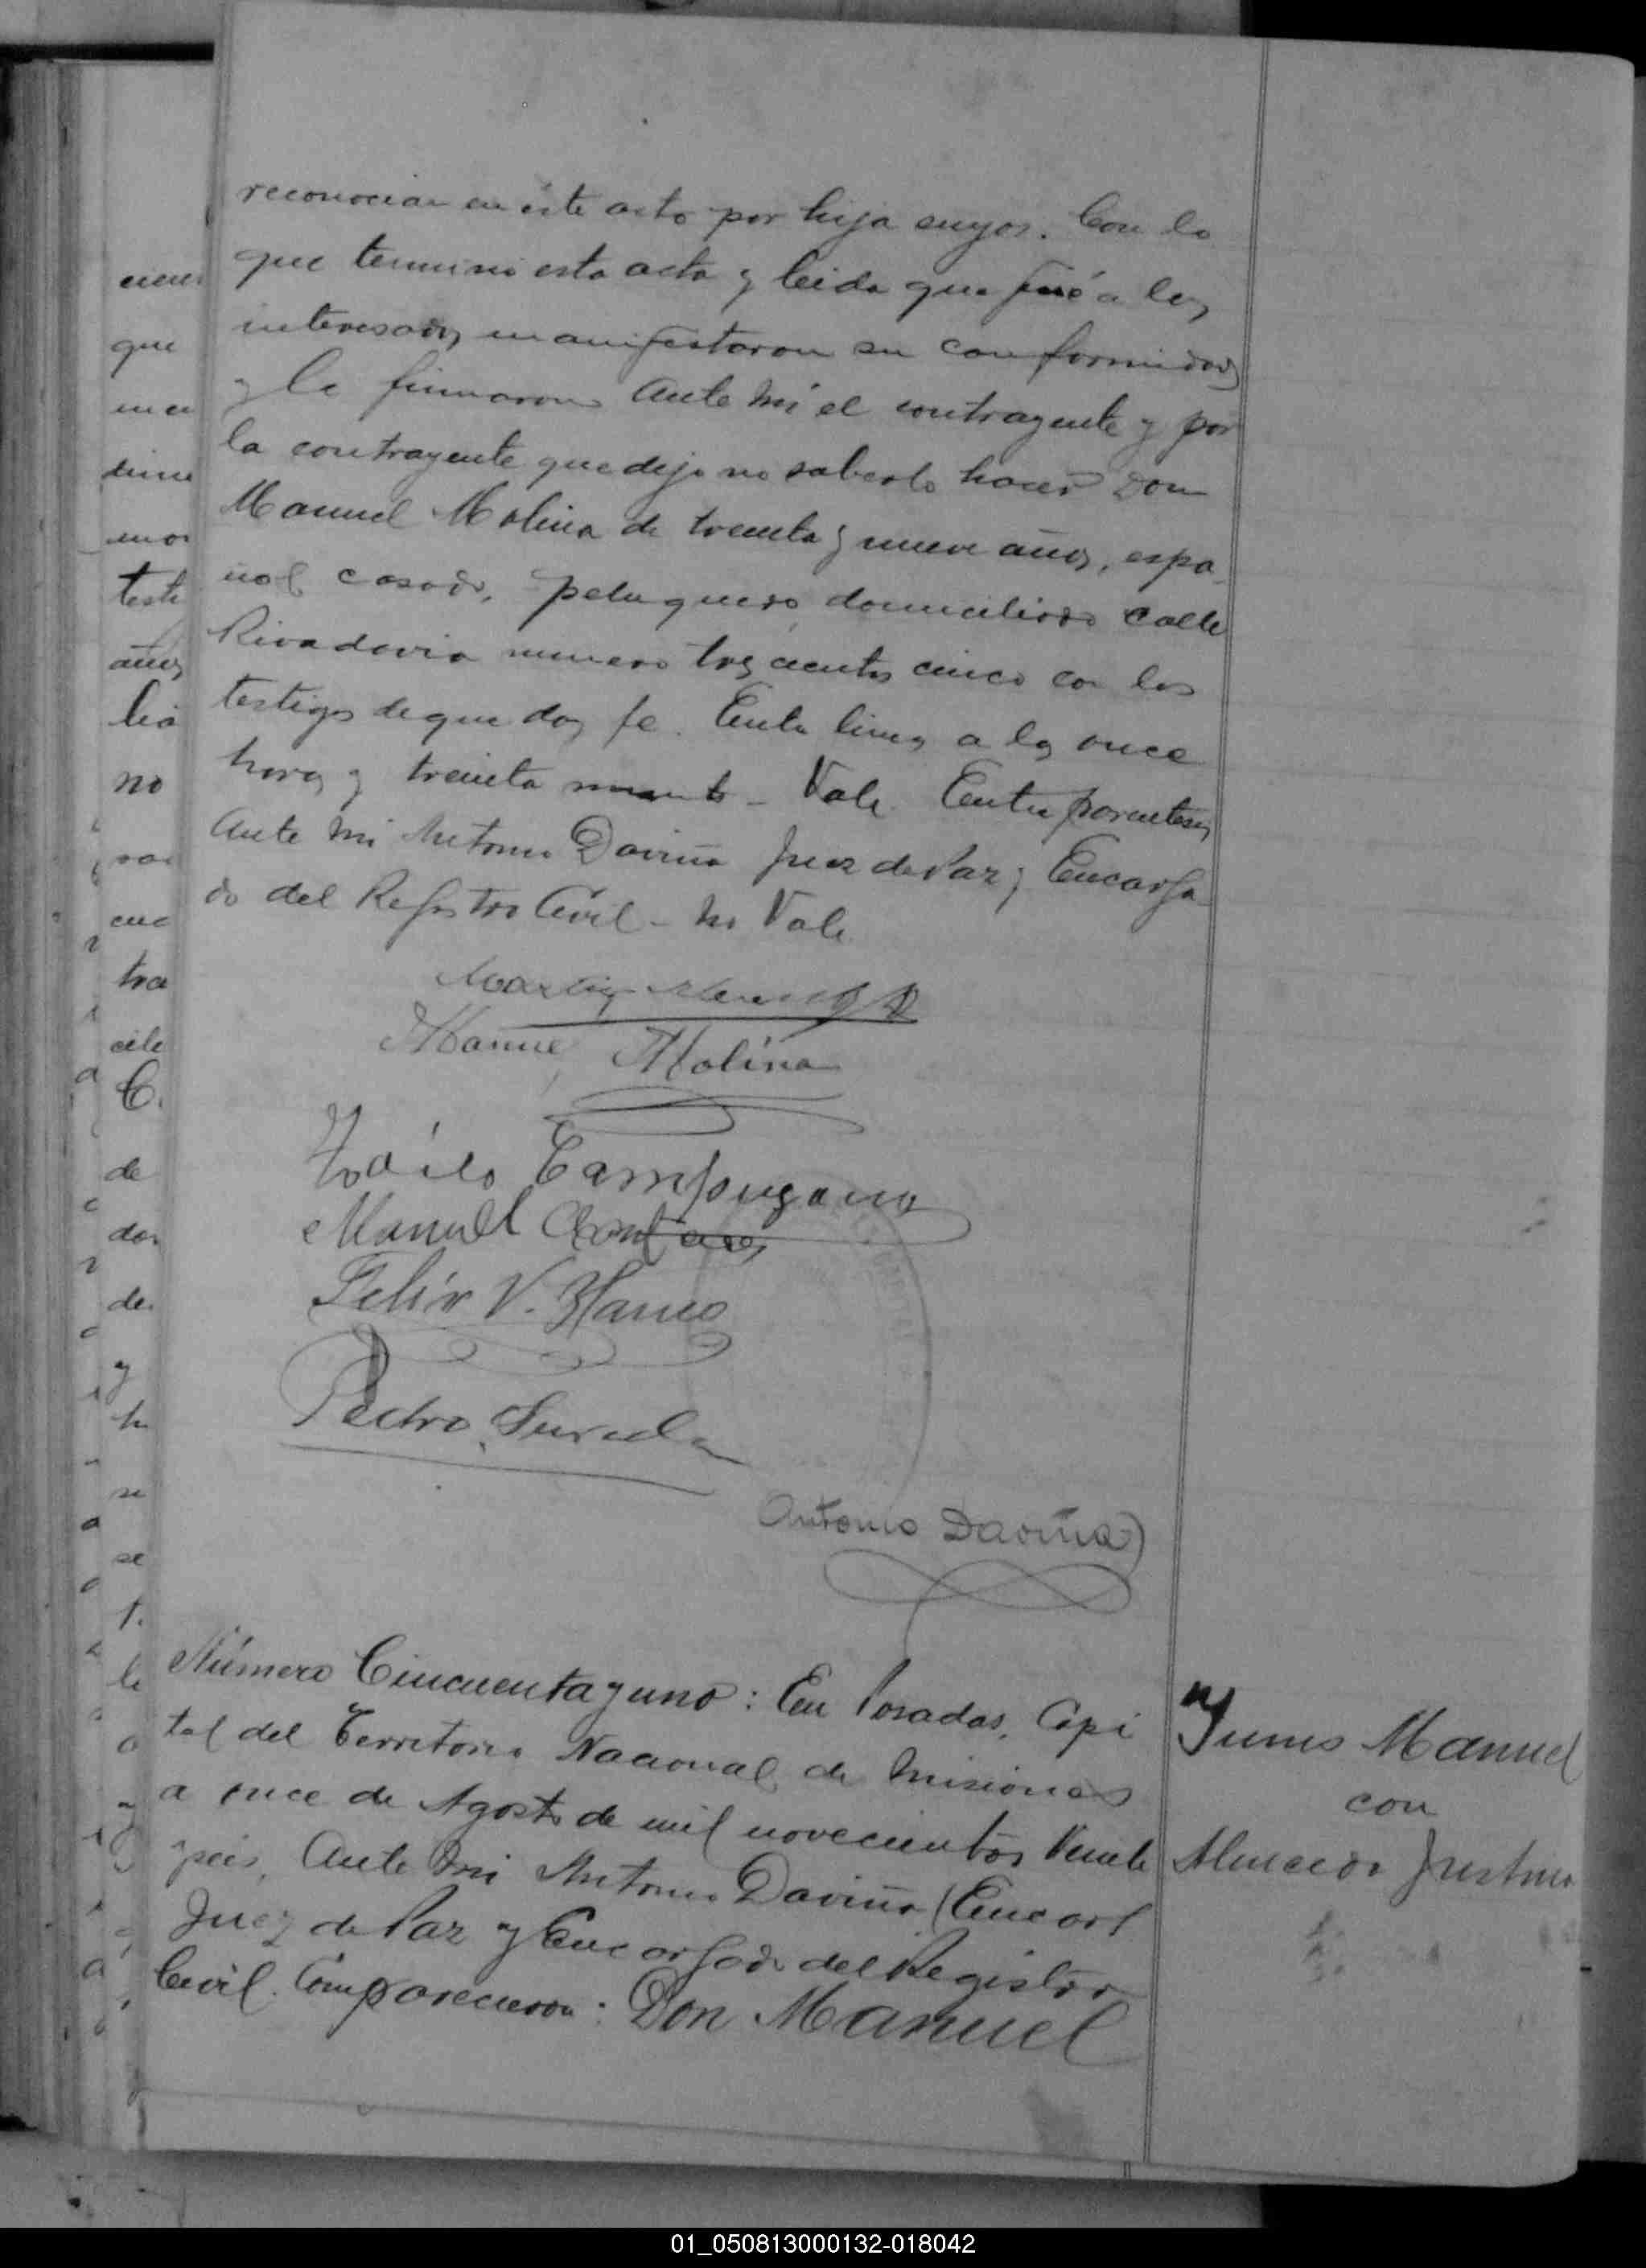 reconocian en éste acto por hija suyos. Con lo
que terminó esta acta y leida que fué a los
interesados manifestaron su conformidad
y la firmaron Ante Mi el contrayente y por
la contrayente que dijo no saberlo hacer Don
Manuel Molina de treinta y nueve años, espa
ñol casado, peluquero domiciliado calle
Rivadavia numero trescientos cinco con los
testigos de que doy fe. Entre lineas a las once
horas y treinta - Vale. Entre parentesis
Ante Mi Antonio Daviña Juez de Paz y Encarga
do del Registro Civil - No Vale
Martin
Manuel Molina
Zoilo Campuzano
Manuel
Felix V. Blanco
Pedro Sureda
Antonio Daviña
Número Cincuenta y uno: En Posadas, Capi
tal del Territorio Nacional de Misiones
a once de Agosto de mil novecientos Veinte
y seis, Ante Mi Antonio Daviña (Encarg
Juez de Paz y Encargado del Registro
Civil. Comparecieron: Don Manuel
Yunis Manuel
con
Almeida Justina
cien
que
testi
años
lia
no
tra
C.
de
dor
de
y
se
se
le
01_050813000132-018042